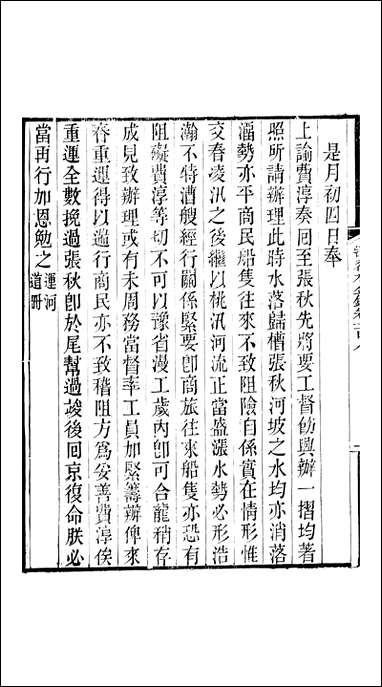 是月初四日奉
上諭費淳奏回至張秋先將要工督飭興辦一摺均著
照所請辦理此時水落歸槽張秋河坡之水均亦消落
溜勢亦平商民船隻往來不致阻險自係實在情形惟
交春凌汛之後繼以桃汛河流正當盛漲水勢必形浩
瀚不特漕艘經行關係緊要卽商旅往來船隻亦恐有
阻礙費淳等切不可以豫省漫工歲內卽可合龍稍存
成見致辦理或有未周務當督率工員加緊籌辦俾來
春重運得以遄行商民亦不致稽阻方爲妥善費淳俟
重運全數挽過張秋卽於尾幫過竣後回京復命朕必
當再行加恩勉之運河
道冊